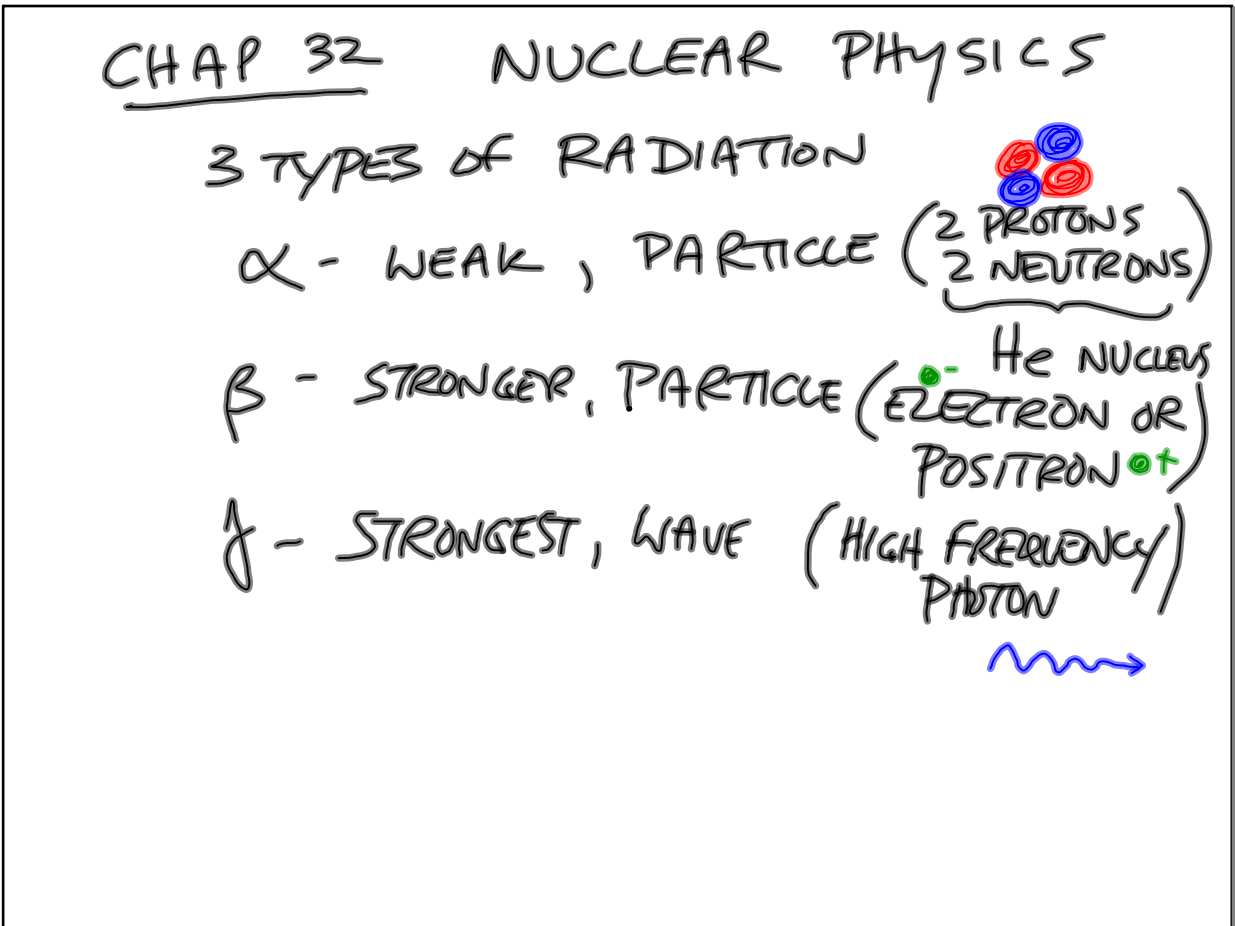 CHAP 32 NUCLEAR PHYSICS
3 TYPES OF RADIATION
α - WEAK, PARTICLE (2 PROTONS
2 NEUTRONS)
He NUCLEUS
β - STRONGER, PARTICLE (ELECTRON OR
POSITRON +)
γ - STRONGEST, WAVE (HIGH FREQUENCY
PHOTON)